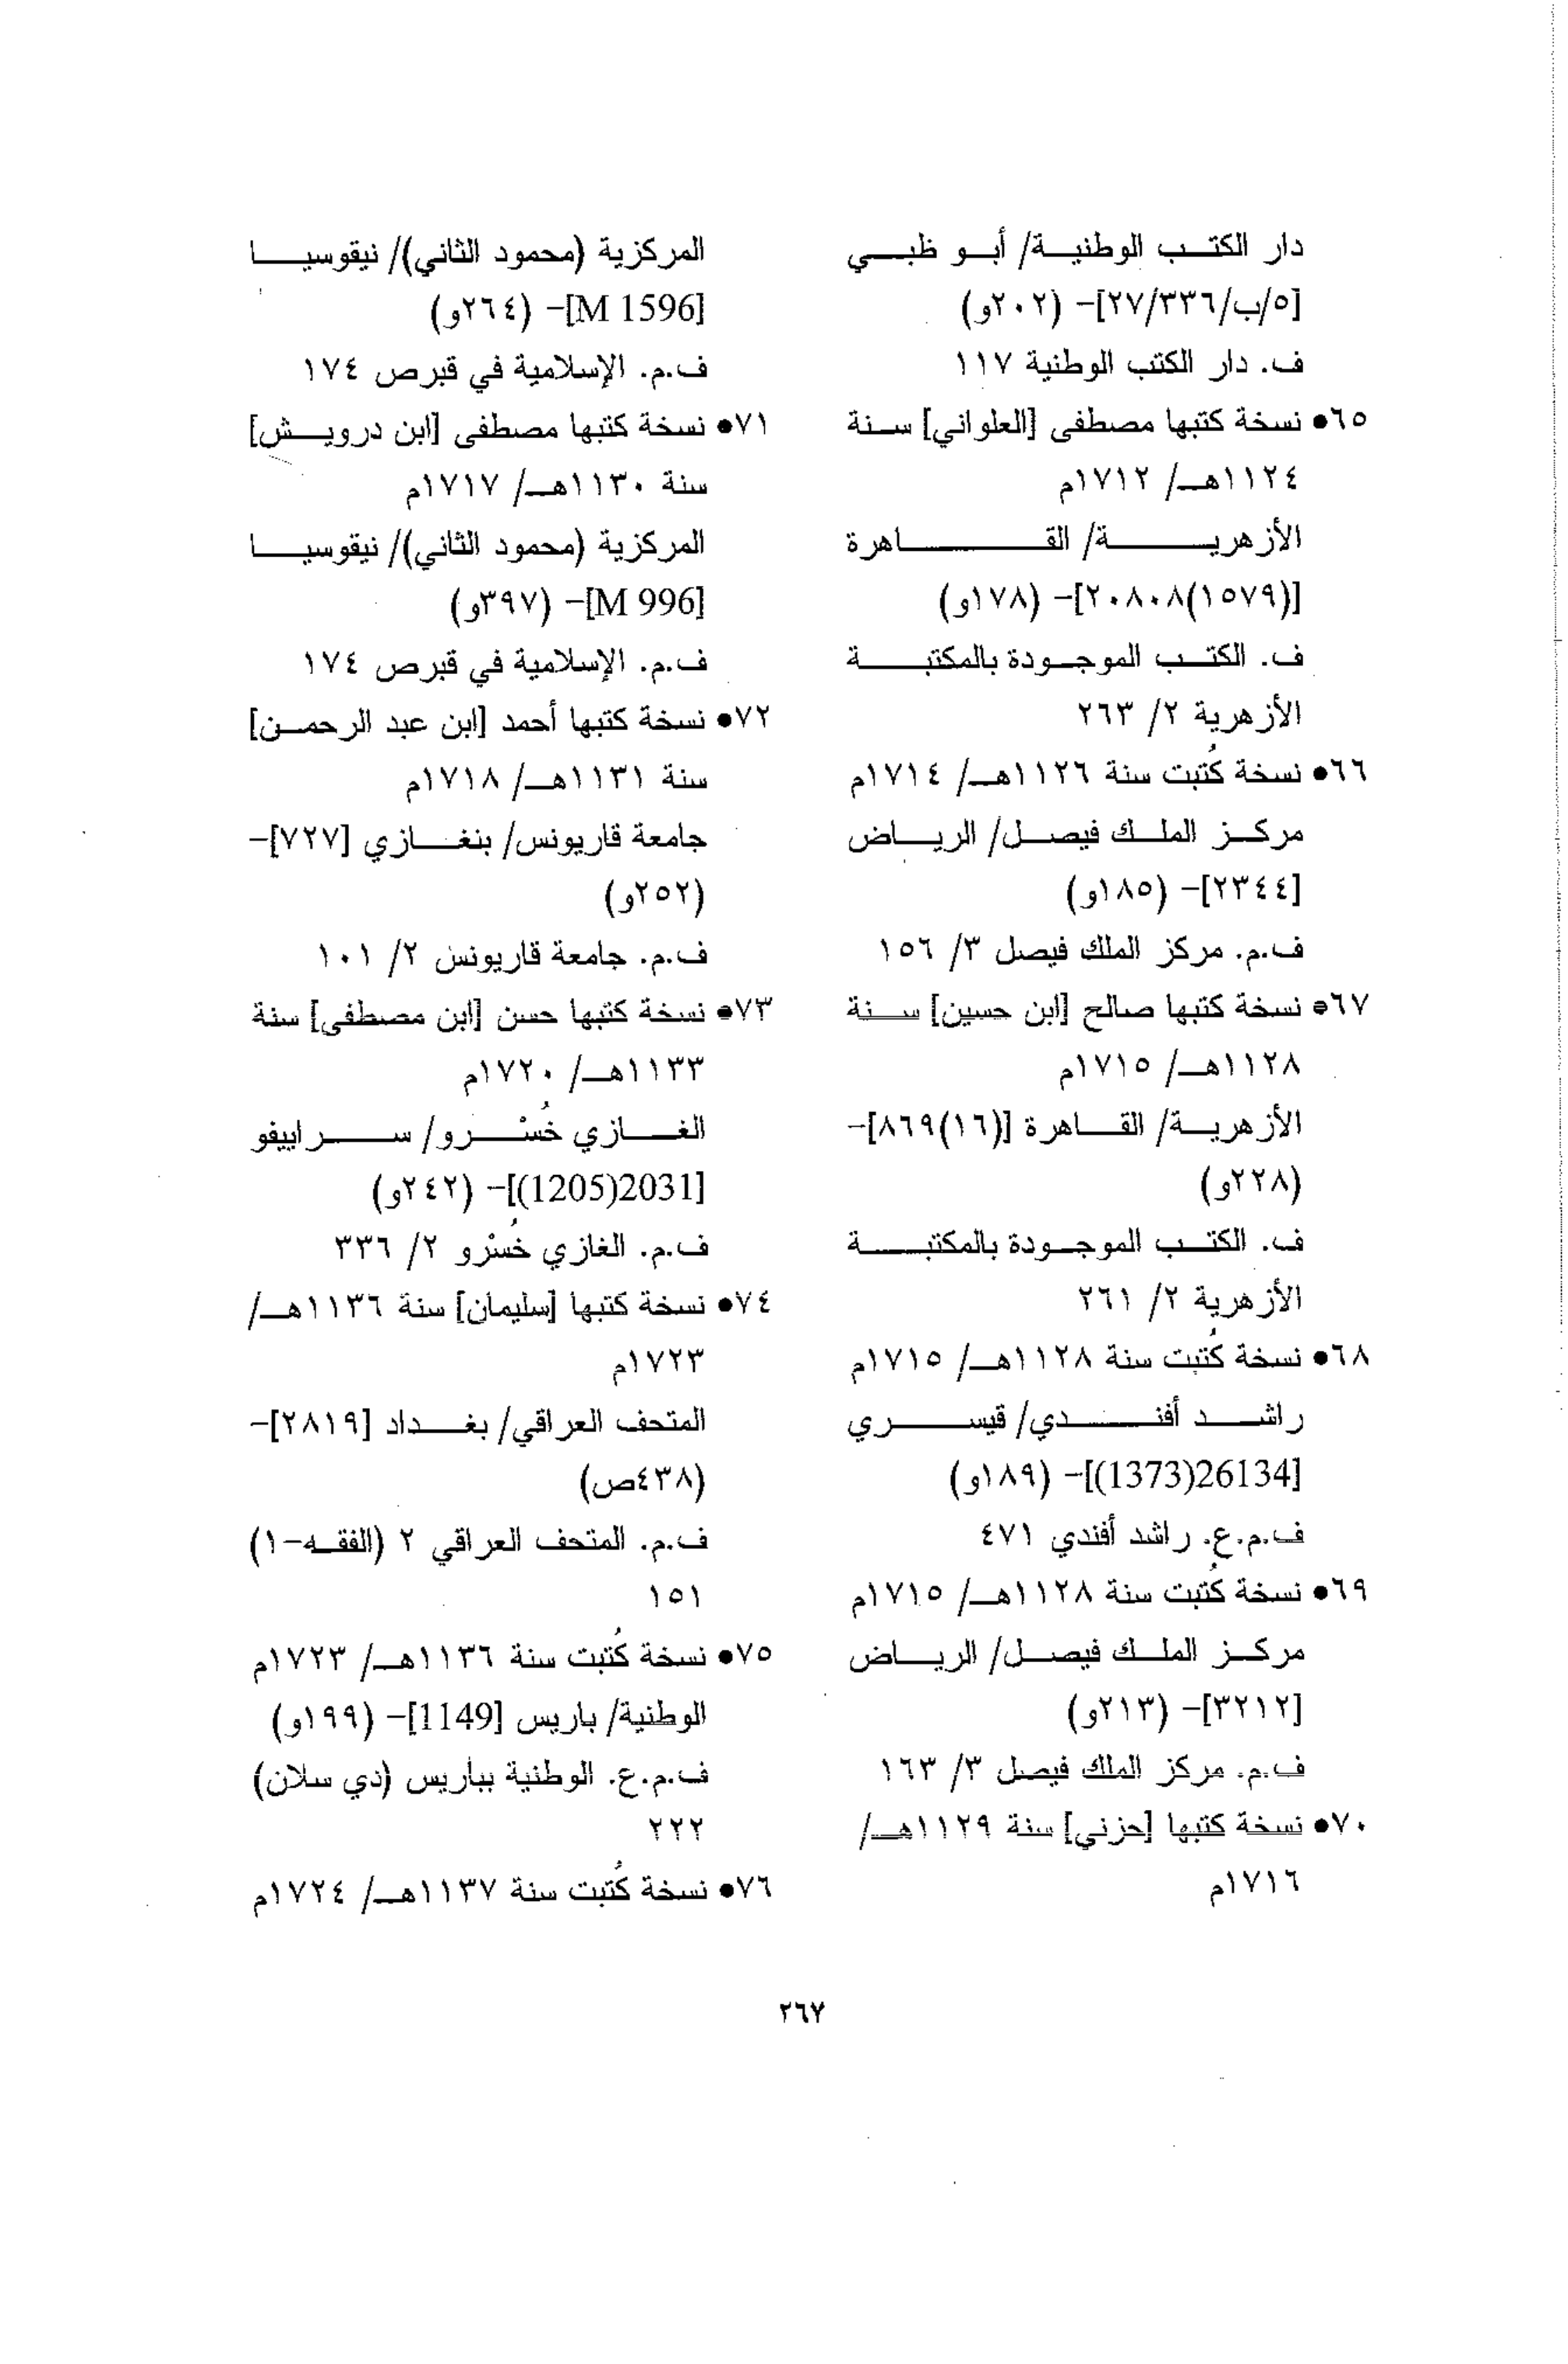 دار الكتب الوطنية/ أبو ظبي
[٥/ب/٣٣٦/٢٧]– (٢٠٢و)
ف. دار الكتب الوطنية ١١٧
٦٥● نسخة كتبها مصطفى [العلواني] سنة
١١٢٤هـ/ ١٧١٢م
الأزهرية/ القاهرة
[(١٥٧٩)٢٠٨٠٨]– (١٧٨و)
ف. الكتب الموجودة بالمكتبة
الأزهرية ٢/ ٢٦٣
٦٦● نسخة كُتبت سنة ١١٢٦هـ/ ١٧١٤م
مركز الملك فيصل/ الرياض
[٢٣٤٤]– (١٨٥و)
ف.م. مركز الملك فيصل ٣/ ١٥٦
٦٧● نسخة كتبها صالح [ابن حسين] سنة
١١٢٨هـ/ ١٧١٥م
الأزهرية/ القاهرة [(١٦)٨٦٩]–
(٢٢٨و)
ف. الكتب الموجودة بالمكتبة
الأزهرية ٢/ ٢٦١
٦٨● نسخة كُتبت سنة ١١٢٨هـ/ ١٧١٥م
راشد أفندي/ قيسري
[26134(1373)]– (١٨٩و)
ف.م.ع. راشد أفندي ٤٧١
٦٩● نسخة كُتبت سنة ١١٢٨هـ/ ١٧١٥م
مركز الملك فيصل/ الرياض
[٣٢١٢]– (٢١٣و)
ف.م. مركز الملك فيصل ٣/ ١٦٣
٧٠● نسخة كتبها [حزني] سنة ١١٢٩هـ/
١٧١٦م
المركزية (محمود الثاني)/ نيقوسيا
[M 1596]– (٢٦٤و)
ف.م. الإسلامية في قبرص ١٧٤
٧١● نسخة كتبها مصطفى [ابن درويش]
سنة ١١٣٠هـ/ ١٧١٧م
المركزية (محمود الثاني)/ نيقوسيا
[M 996]– (٣٩٧و)
ف.م. الإسلامية في قبرص ١٧٤
٧٢● نسخة كتبها أحمد [ابن عبد الرحمن]
سنة ١١٣١هـ/ ١٧١٨م
جامعة قاريونس/ بنغازي [٧٢٧]–
(٢٥٢و)
ف.م. جامعة قاريونس ٢/ ١٠١
٧٣● نسخة كتبها حسن [ابن مصطفى] سنة
١١٣٣هـ/ ١٧٢٠م
الغازي خُسْرو/ سراييفو
[2031(1205)]– (٢٤٢و)
ف.م. الغازي خُسْرو ٢/ ٣٣٦
٧٤● نسخة كتبها [سليمان] سنة ١١٣٦هـ/
١٧٢٣م
المتحف العراقي/ بغداد [٢٨١٩]–
(٤٣٨ص)
ف.م. المتحف العراقي ٢ (الفقه–١)
١٥١
٧٥● نسخة كُتبت سنة ١١٣٦هـ/ ١٧٢٣م
الوطنية/ باريس [1149]– (١٩٩و)
ف.م.ع. الوطنية بباريس (دي سلان)
٢٢٢
٧٦● نسخة كُتبت سنة ١١٣٧هـ/ ١٧٢٤م
٢٦٧